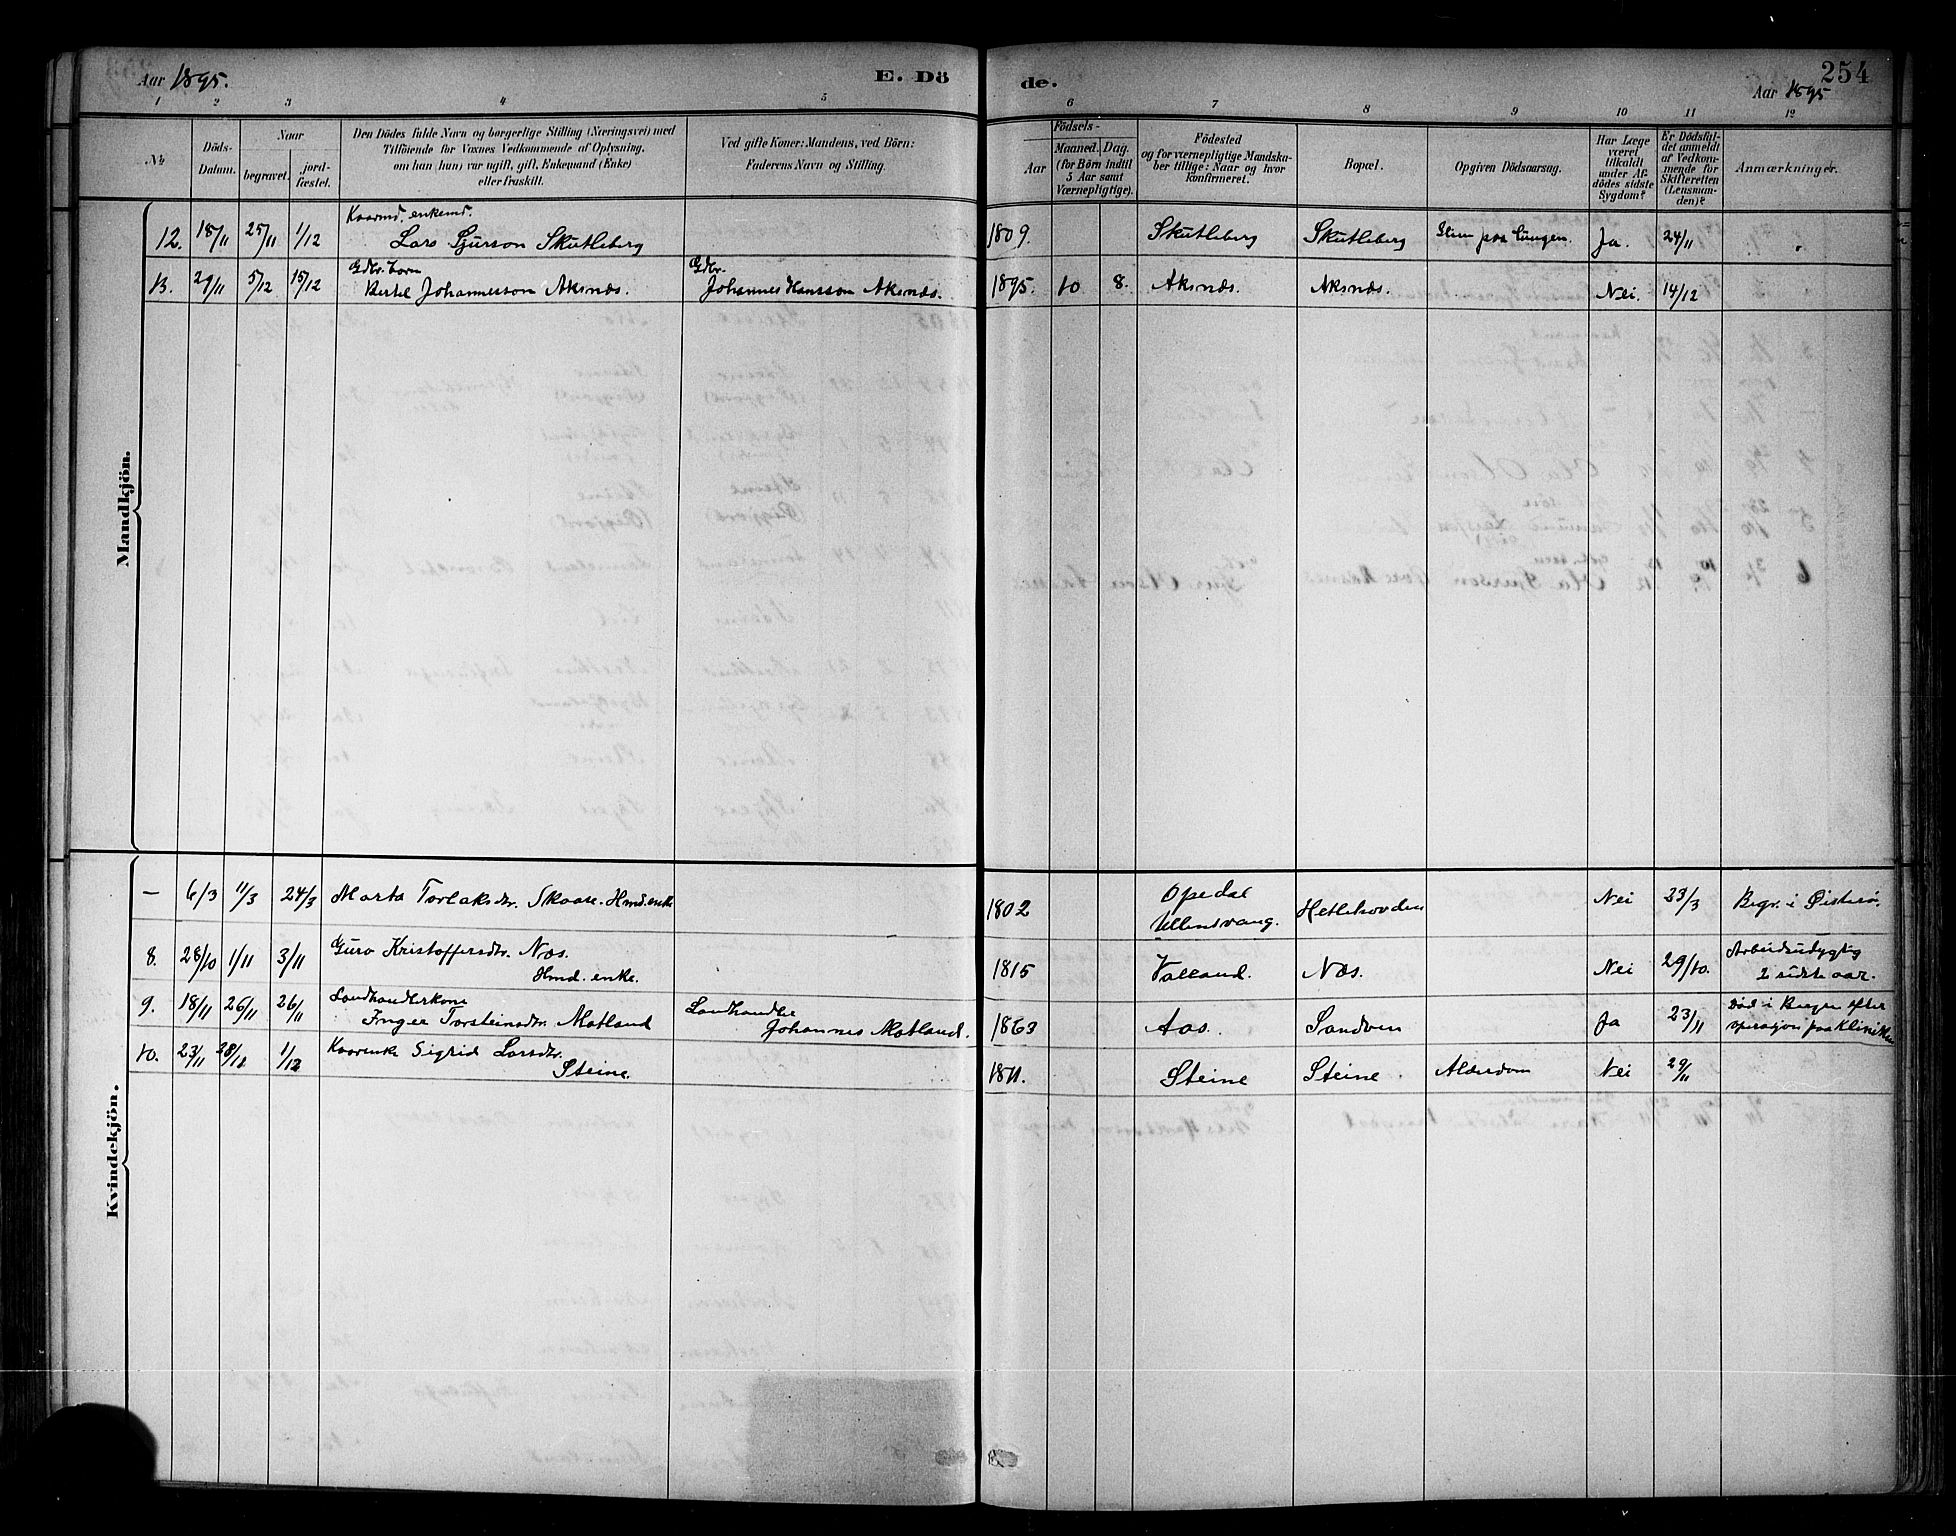 Aar 1895.
E. Dö
de.
254
Aar 1895
1 2 3 4 5 6 7 8 9 10 11 12
No
Döds-Datum.
Naar
begravet.
jord-fæstet.
Den Dödes fulde Navn og borgerlige Stilling (Næringsvei) med
Tilföiende for Voxnes Vedkommende af Oplysning,
om han (hun) var ugift, gift, Enkemand (Enke)
eller fraskilt.
Ved gifte Koner: Mandens, ved Börn:
Faderens Navn og Stilling.
Födsels-
Aar
Maaned. Dag.
(for Börn indtil
5 Aar samt
Værnepligtige).
Födested
og for værnepligtige Mandska-
ber tillige: Naar og hvor
konfirmeret.
Bopæl.
Opgiven Dödsaarsag.
Har Læge
været
tilkaldt
under Af-
dödes sidste
Sygdom?
Er Dödsfal-
det anmeldt
af Vedkom-
mende for
Skifteretten
(Lensman-
den)?
Anmærkninger.
Mandkjön.
Kaarmd. enkemd.
12. 18/11 25/11 1/12 Lars Sjurson Skutleberg 1809. Skutleberg Skutleberg Slim paa lungen. Ja. 24/11
Gdbr. barn Gdbr.
13. 29/11 5/12 15/12 Bertel Johannesson Aksnæs. Johannes Hansson Aksnæs. 1895. 10 8. Aksnæs. Aksnæs. Nei. 14/12
Kvindekjön.
— 6/3 11/3 24/3 Marta Torlaksdtr. Skaare. Hmd. enke 1802 Opedal Ullensvang. Hetlehovden Nei 23/3 Begr. i Øisterø.
8. 28/10 1/11 3/11 Guro Kristoffersdtr. Næs. 1815 Valland. Næs. Nei 29/10. Arbeidsudygtig
Hmd. enke. 2 sidste aar.
9. 18/11 26/11 26/11 Landhandlerkone Landhandler 1863 Aas. Sandven Ja 23/11 Död i Bergen efter
Inger Torsteinsdtr. Matland Johannes Matland. operasjon paa Kliniken
10. 23/11 28/11 1/12 Kaarenke Sigrid Larsdtr. 1811. Steine Steine Alderdom Nei 29/11
Steine.